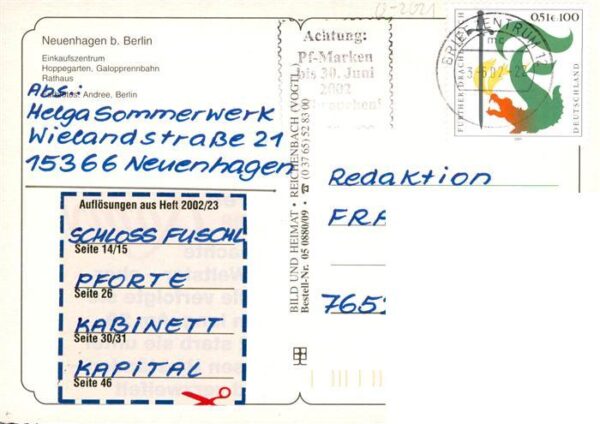 0-2021
Neuenhagen b. Berlin
Einkaufszentrum
Hoppegarten, Galopprennbahn
Rathaus
Andree, Berlin
Abs.:
Helga Sommerwerk
Wielandstraße 21
15366 Neuenhagen
Achtung:
Pf-Marken
bis 30. Juni
2002
BRIEFZENTRUM
mc
-22
0,51€ 100
FURTHER DRACHENSTICH
DEUTSCHLAND
BILD UND HEIMAT • REICHENBACH (VOGTL.)
Bestell-Nr. 05 0880/09 • ☎ (0 37 65) 52 83 00
Redaktion
FRA
765
Auflösungen aus Heft 2002/23
SCHLOSS FUSCHL
Seite 14/15
PFORTE
Seite 26
KABINETT
Seite 30/31
KAPITAL
Seite 46